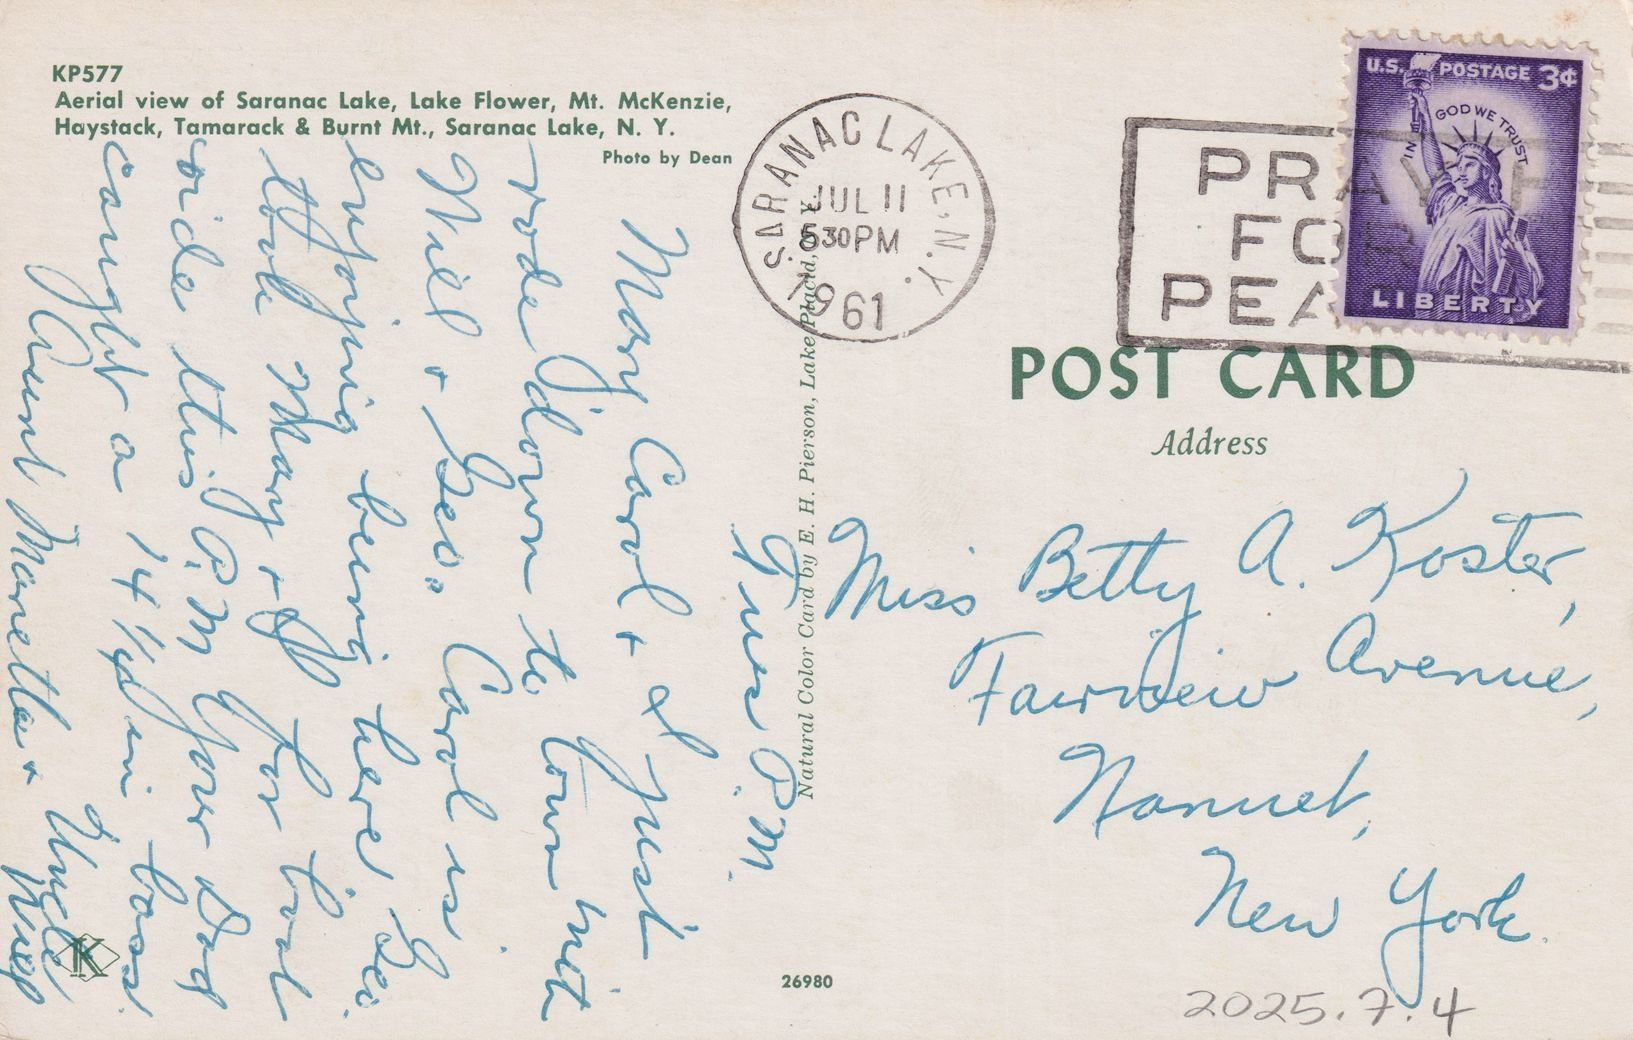 KP577
Aerial view of Saranac Lake, Lake Flower, Mt. McKenzie,
Haystack, Tamarack & Burnt Mt., Saranac Lake, N. Y.
Photo by Dean
SARANAC LAKE, N.Y.
JUL 11
530PM
1961
PRAY
FOR
PEA
U.S. POSTAGE 3¢
IN GOD WE TRUST
LIBERTY
POST CARD
Address
Natural Color Card by E. H. Pierson, Lake Placid, N. Y.
Tues P.M.
Mary Carol + I just
rode down to town with
Will + Geo. Carol is
enjoying being here. Geo
took Mary + for boat
ride this P.M. Your Dad
caught a 14½ in bass.
Aunt Manetta + Uncle Will
Miss Betty A. Koster,
Fairview Avenue,
Nanuet,
New York.
K
26980
2025.7.4